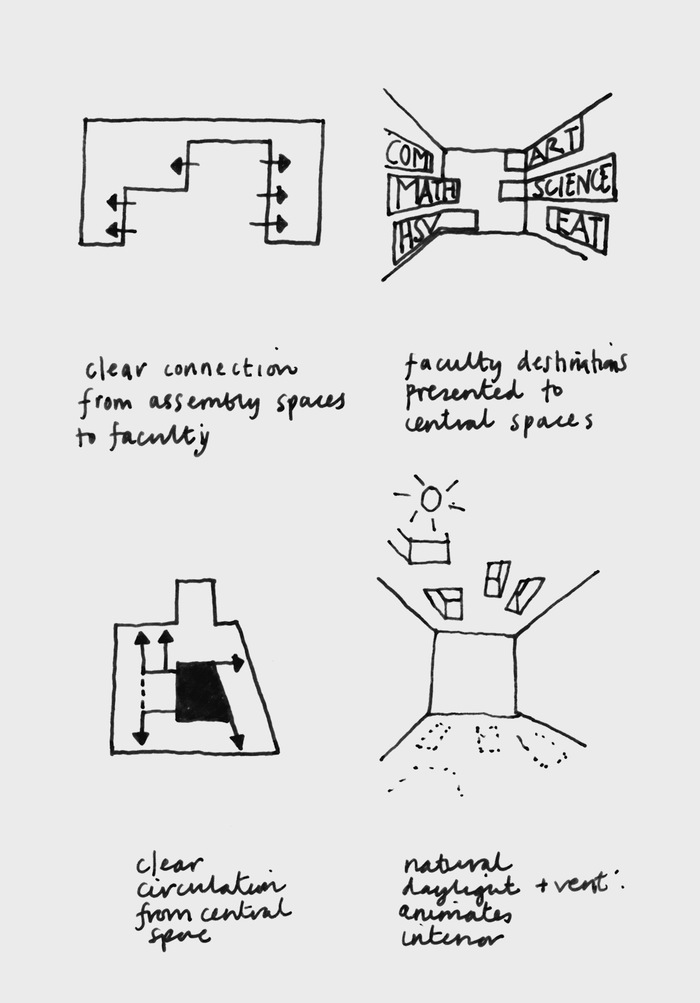 COM
MATH
HSV
ART
SCIENCE
EAT
clear connection
from assembly spaces
to faculty
faculty destinations
presented to
central spaces
clear
circulation
from central
space
natural
daylight + vent'.
animates
interior